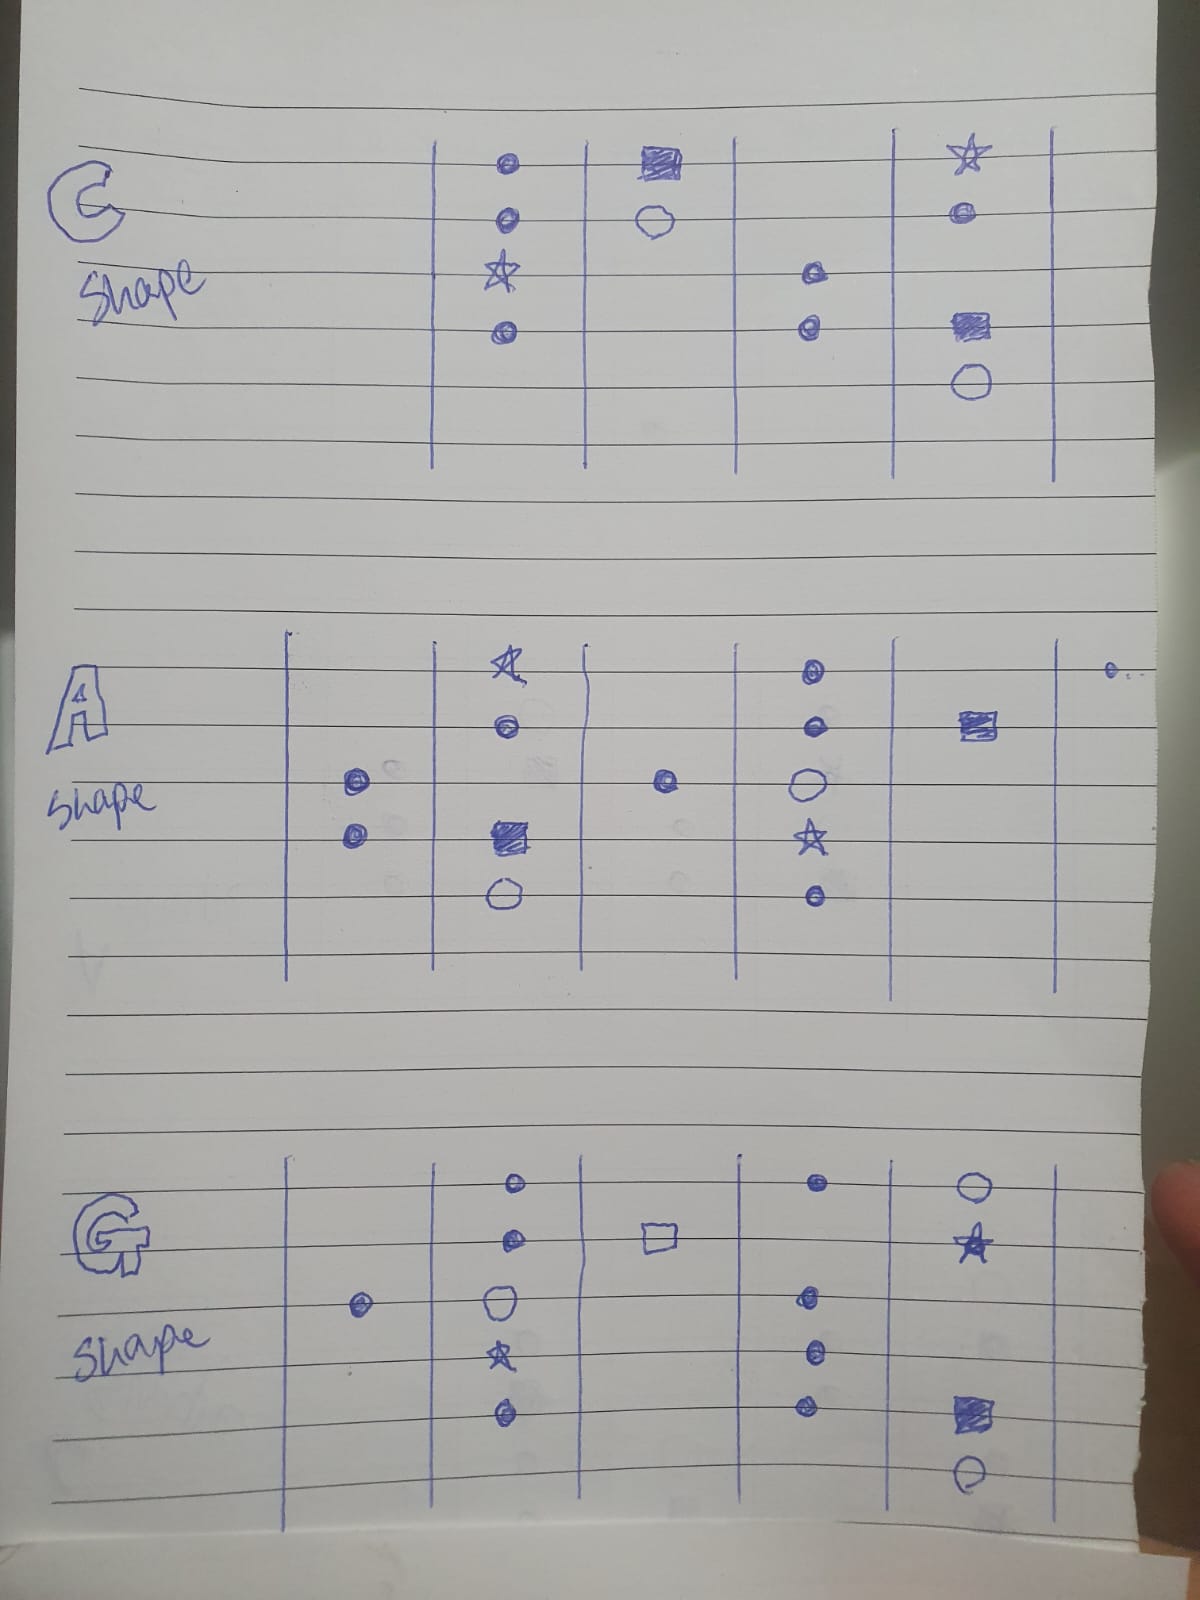 C
shape
A
shape
G
shape